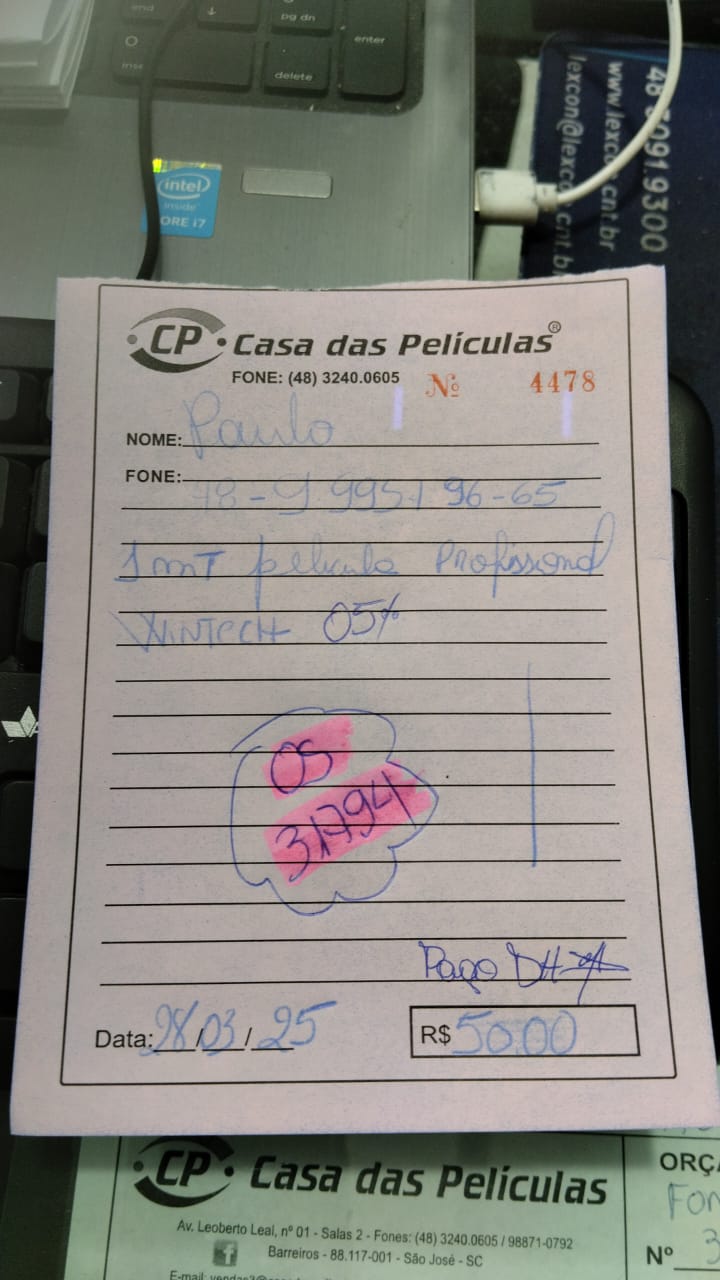 end
pg dn
enter
insert
delete
intel
inside
CORE i7
48 3091.9300
www.lexcon.cnt.br
lexcon@lexcon.cnt.br
CP Casa das Películas®
FONE: (48) 3240.0605 Nº 4478
NOME: Paulo
FONE:
48-9.9951 96-65
1 mT película Profissional
WINTECH 05%
OS
31794
Pago DH
Data: 28/03/25 R$ 50,00
CP Casa das Películas
Av. Leoberto Leal, nº 01 - Salas 2 - Fones: (48) 3240.0605 / 98871-0792
Barreiros - 88.117-001 - São José - SC
ORÇA
Fon
Nº 3